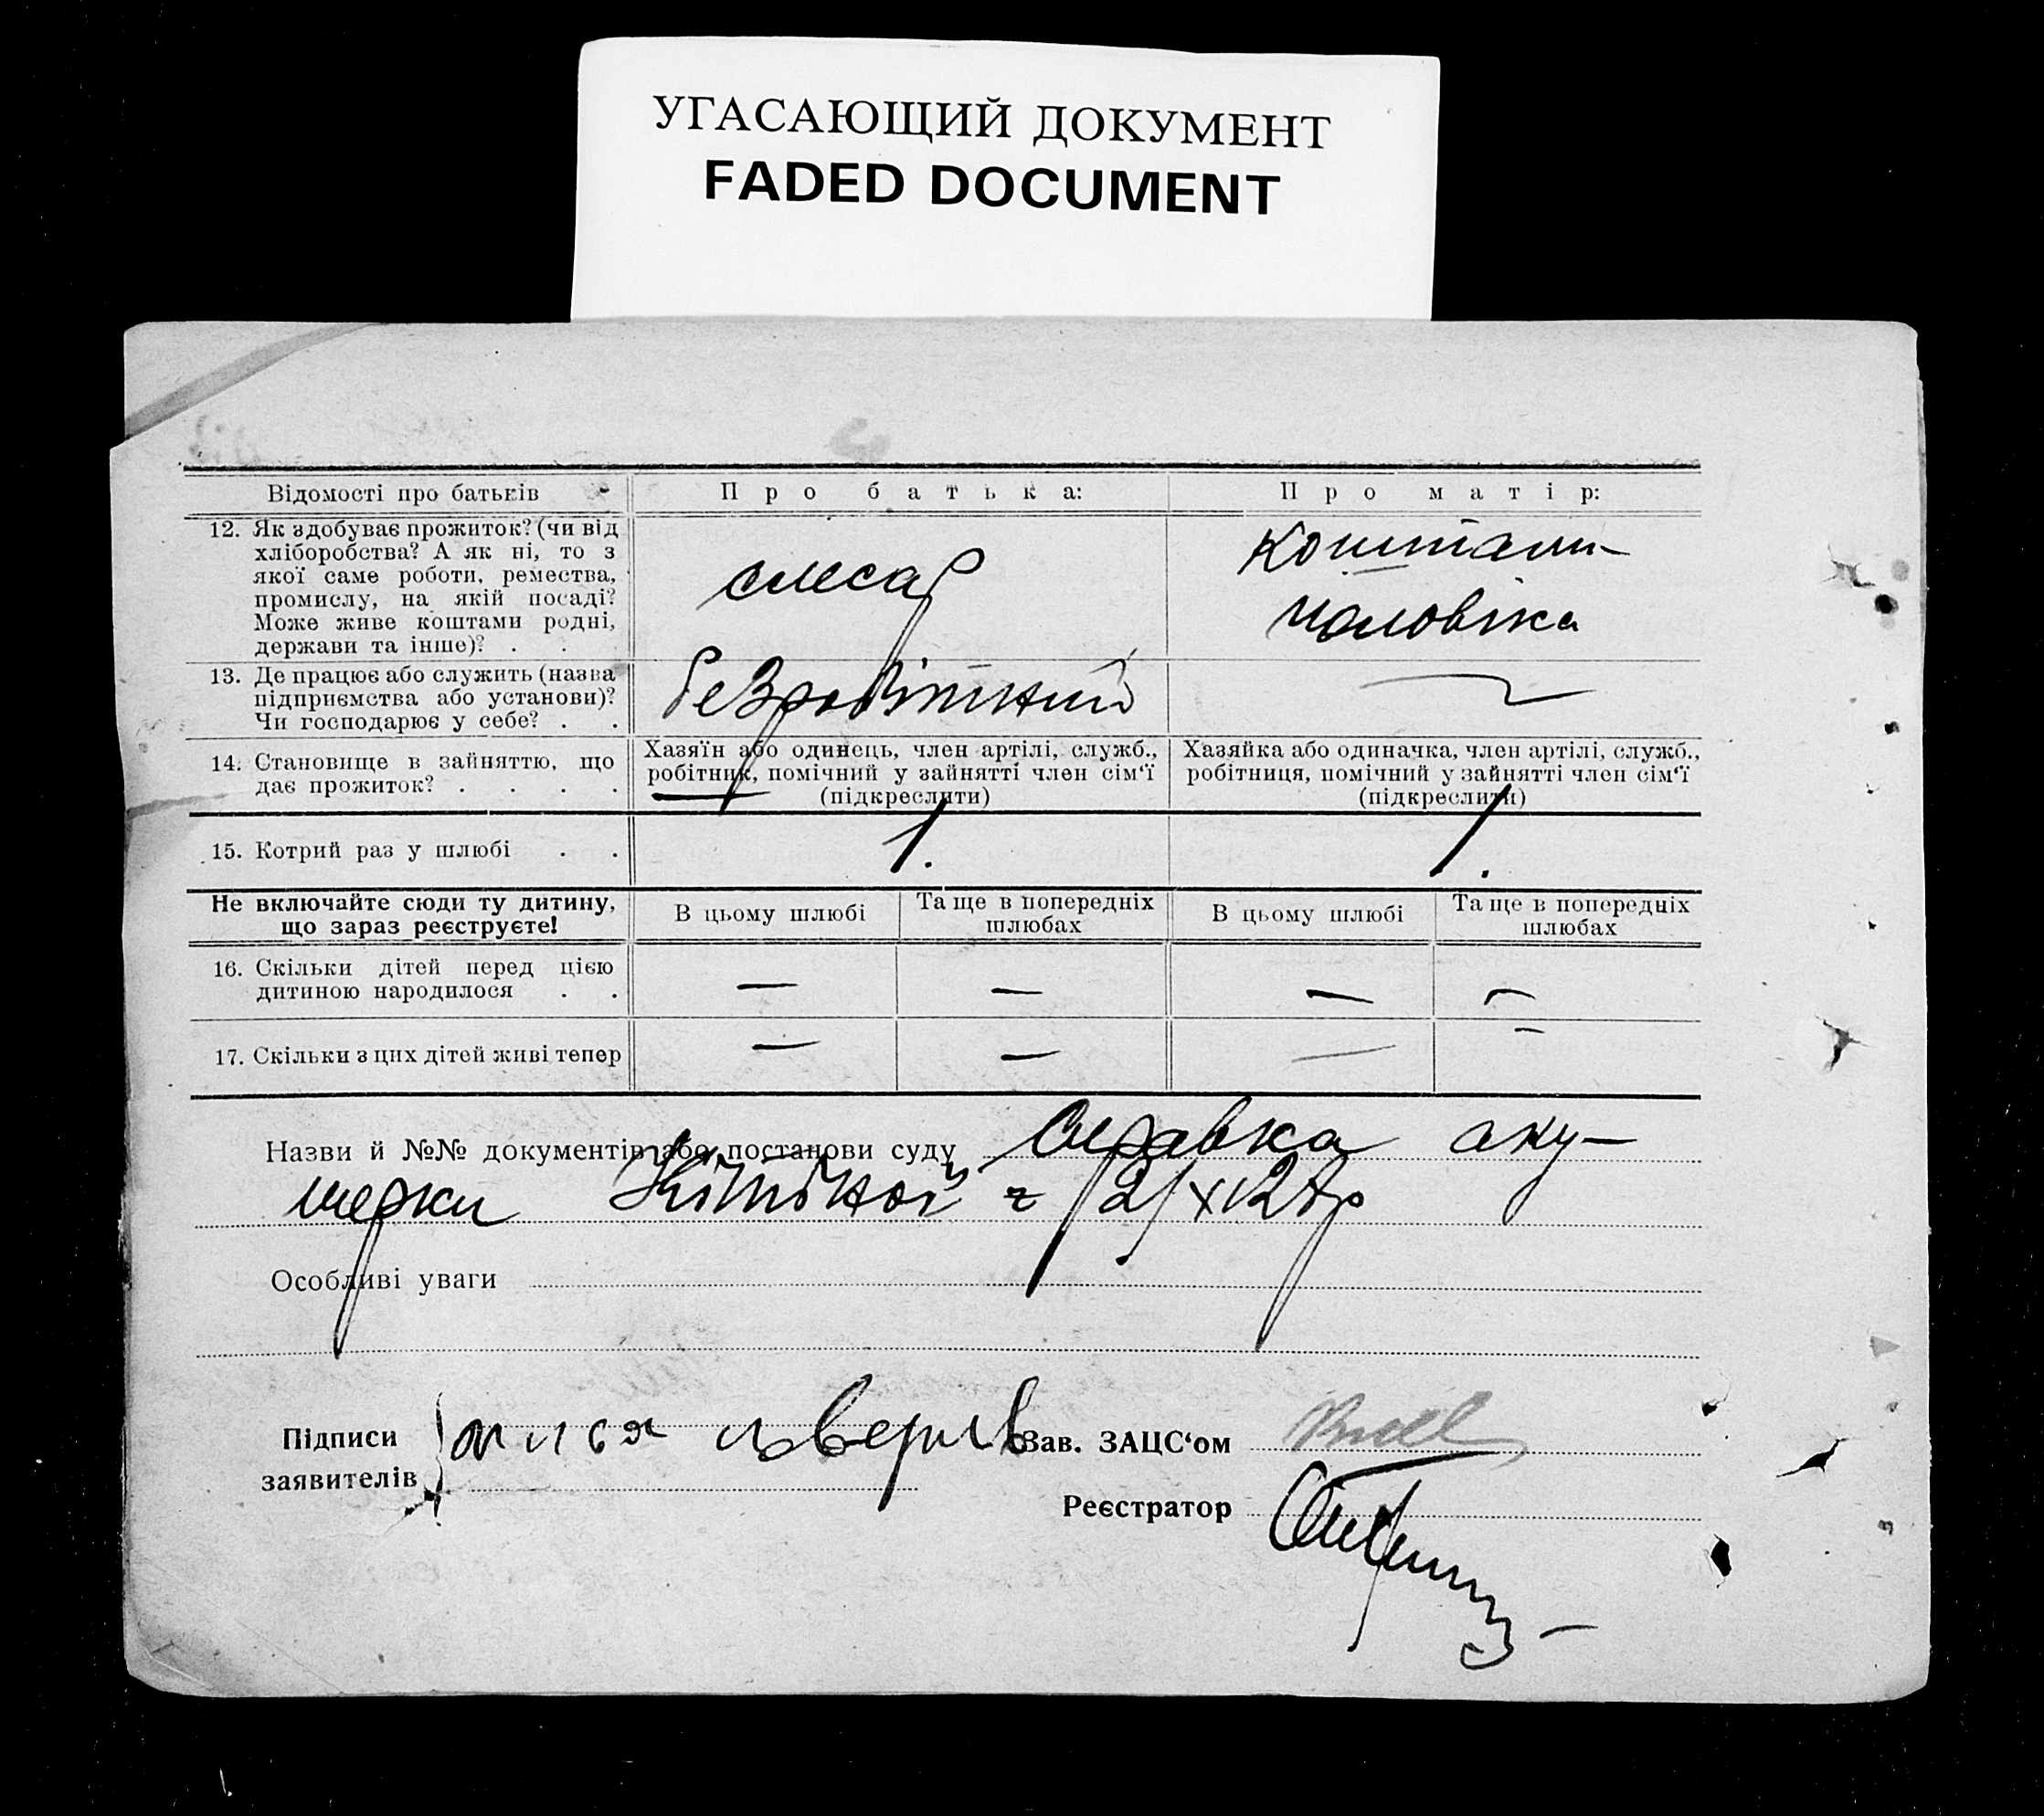 УГАСАЮЩИЙ ДОКУМЕНТ
FADED DOCUMENT
Відомості про батьків
Про батька:
Про матір:
12. Як здобуває прожиток? (чи від
хліборобства? А як ні, то з
якої саме роботи, ремества,
промислу, на якій посаді?
Може живе коштами родні,
держави та інше)? . .
слесар
коштами
чоловіка
13. Де працює або служить (назва
підприємства або установи)?
Чи господарює у себе? . .
безробітний
14. Становище в зайняттю, що
дає прожиток? . . . .
Хазяїн або одинець, член артілі, служб.,
робітник, помічний у зайнятті член сім'ї
(підкреслити)
Хазяйка або одиначка, член артілі, служб.,
робітниця, помічний у зайнятті член сім'ї
(підкреслити)
15. Котрий раз у шлюбі . .
1.
1.
Не включайте сюди ту дитину,
що зараз реєструєте!
В цьому шлюбі
Та ще в попередніх
шлюбах
В цьому шлюбі
Та ще в попередніх
шлюбах
16. Скільки дітей перед цією
дитиною народилося . .
— — — —
17. Скільки з цих дітей живі тепер
— — — —
Назви й №№ документів або постанови суду Справка аку-
шерки
Особливі уваги
Підписи
заявителів
Зав. ЗАЦС'ом
Реєстратор